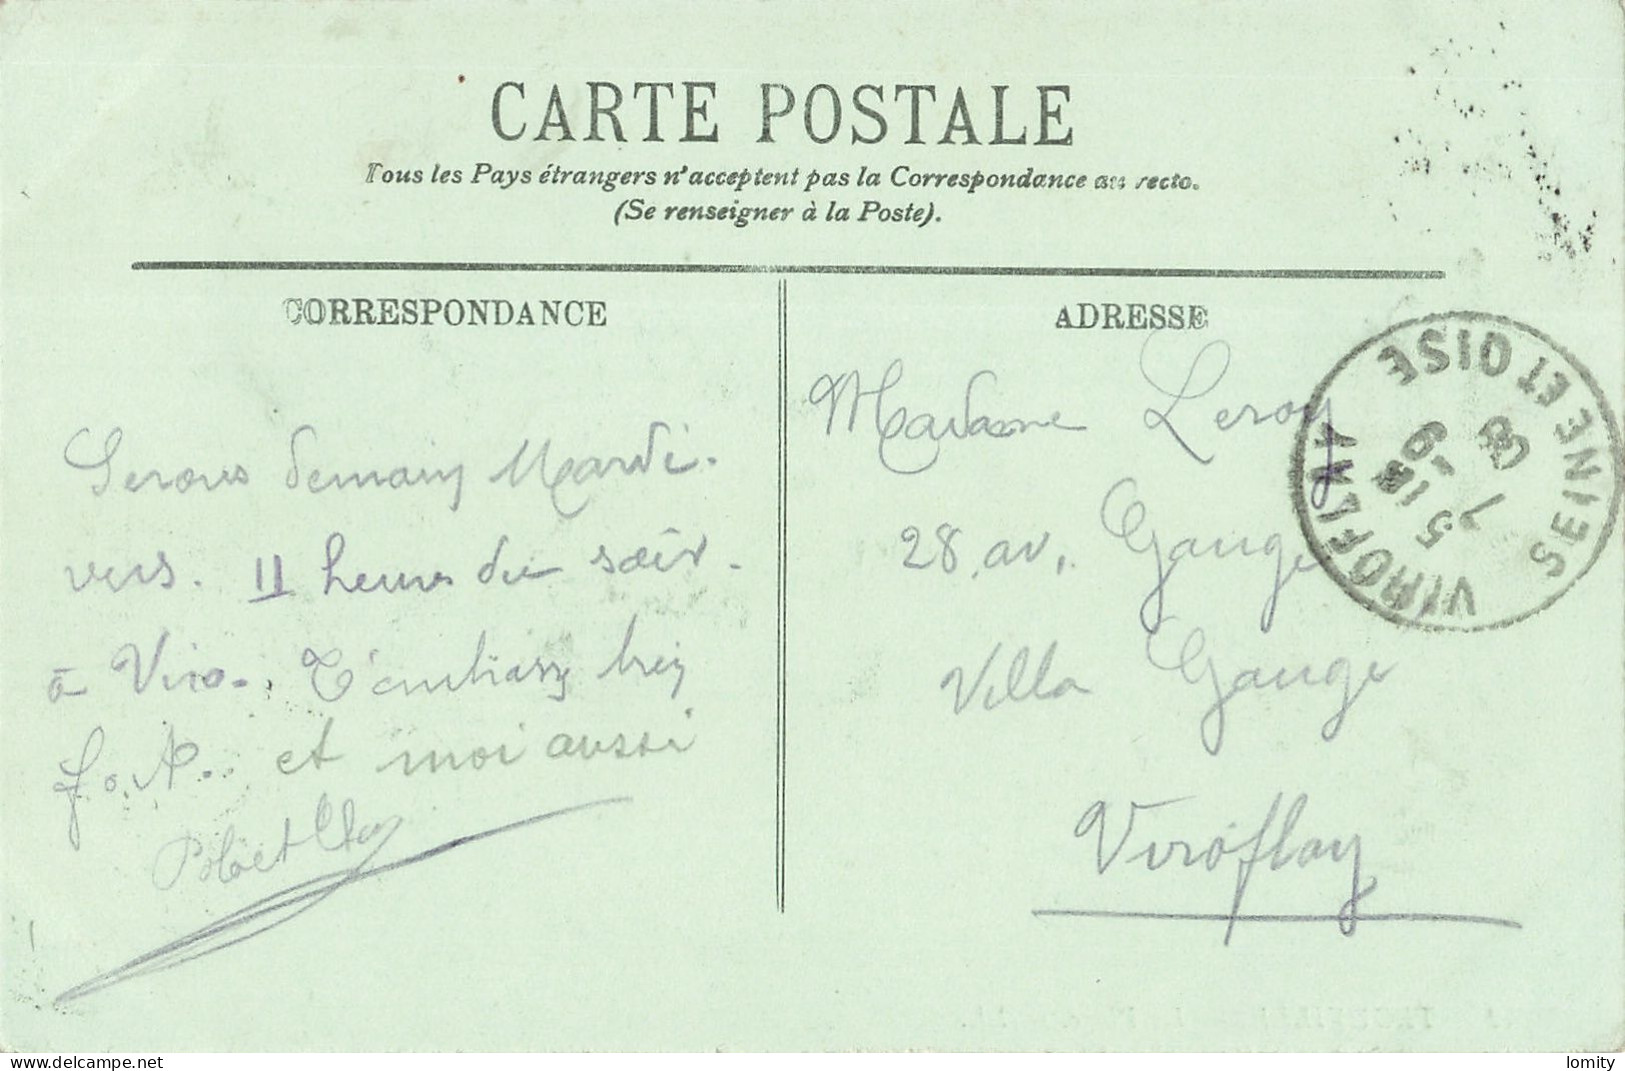 CARTE POSTALE
Tous les Pays étrangers n'acceptent pas la Correspondance au recto.
(Se renseigner à la Poste).
CORRESPONDANCE
Serons demain Mardi.
vers. 11 heures du soir.
à Viro. T'embrasse bien
et moi aussi
ADRESSE
Madame Leroy
28, av. Gaugé
Villa Gaugé
Viroflay
VIROFLAY
SEINE ET OISE
delcampe.net
lomity